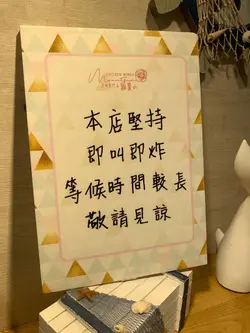 本店堅持
即叫即炸
等候時間較長
敬請見諒